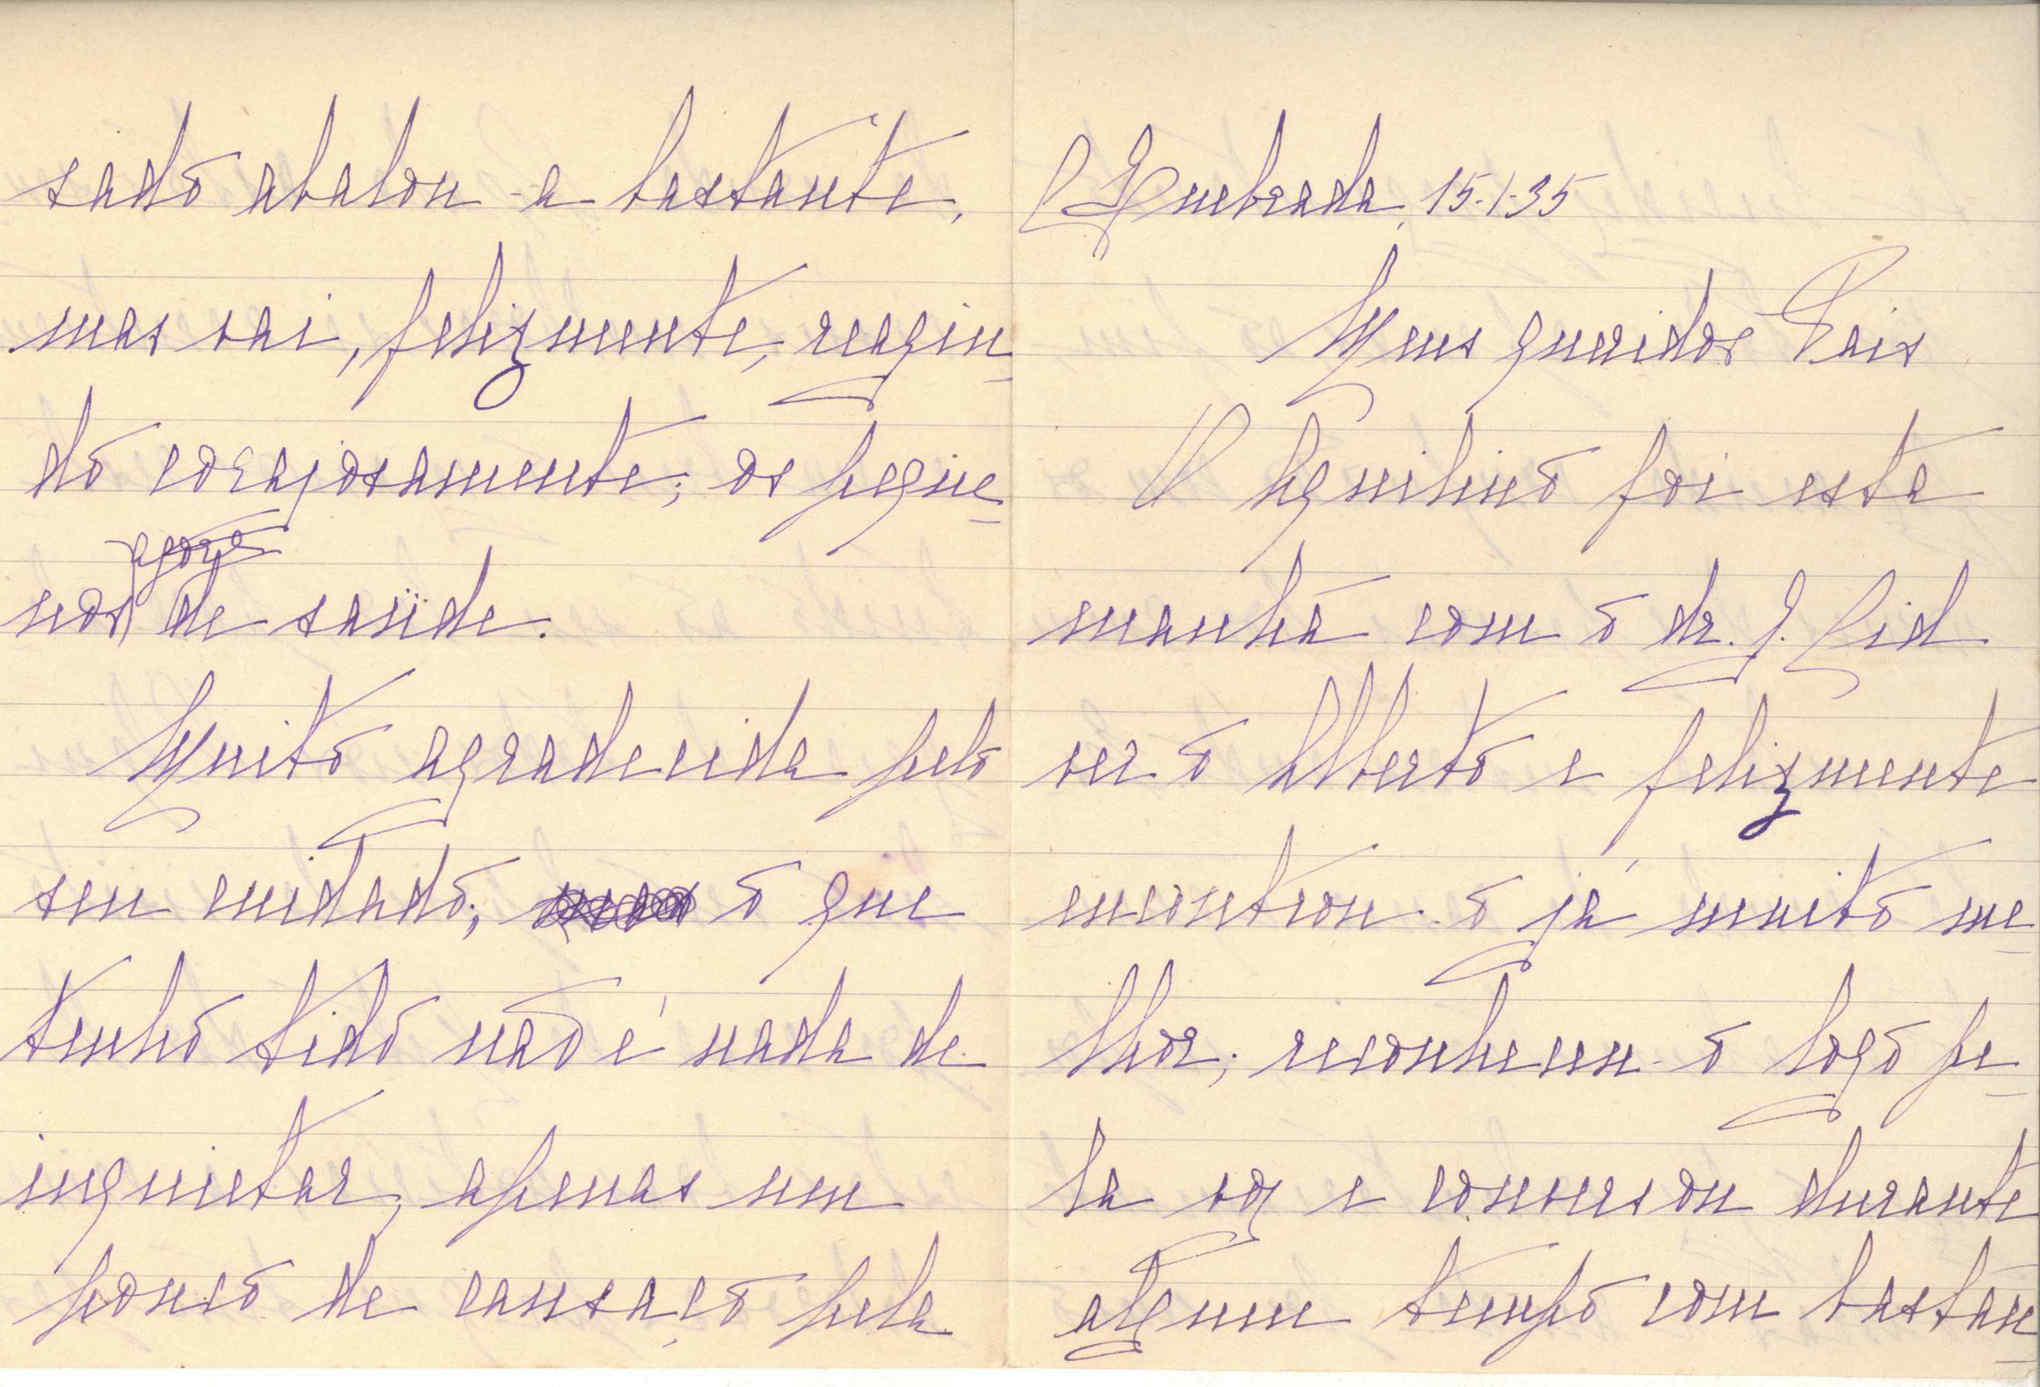 Quebrada, 15-1-35
Meus queridos Pais
O Aquilino foi esta
manhã com o dr. J. Cid
ver o Alberto e felizmente
encontrou-o já muito me-
lhor; reconheceu-o logo pe-
la voz e conversou durante
algum tempo com bastan-
sado abalou-a bastante,
mas vai, felizmente, reagin-
do corajosamente; os peque-
nos agora de saúde.
Muito agradecida pelo
seu cuidado; o que
tenho tido não é nada de
inquietar, apenas um
pouco de cansaço pela